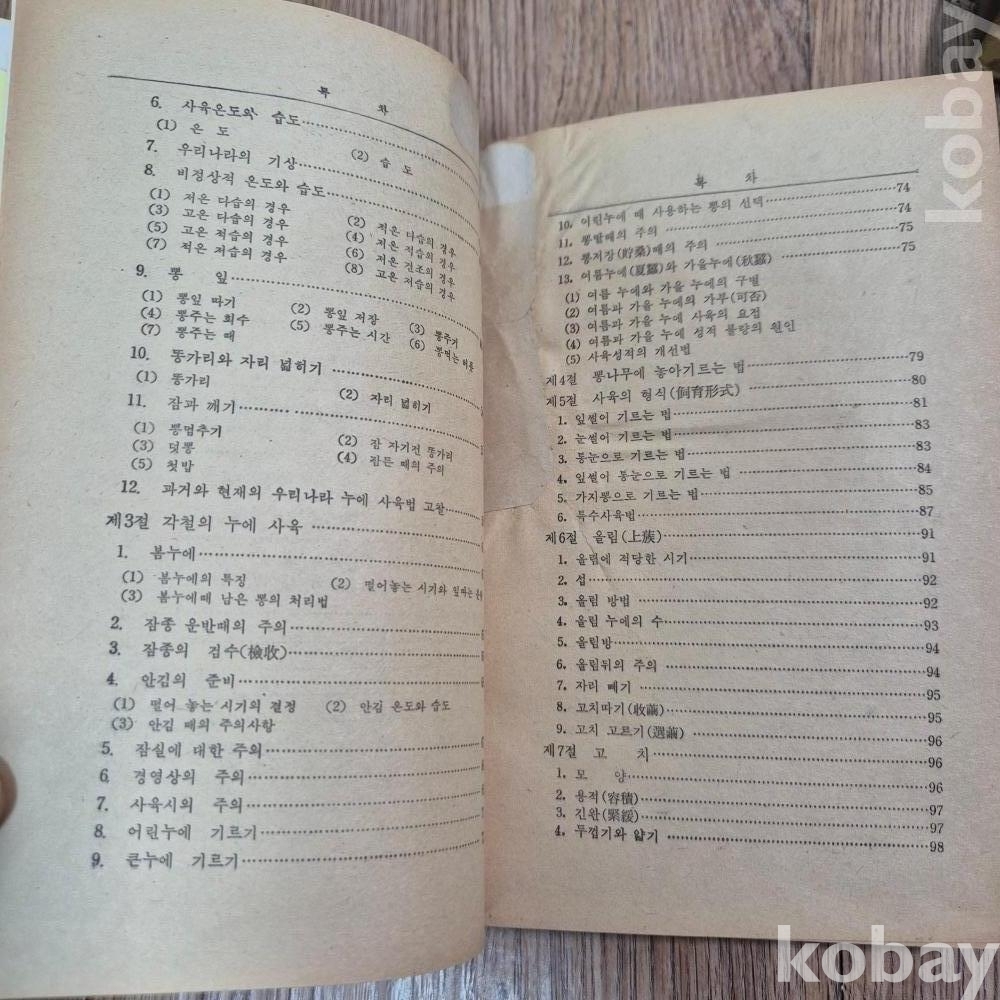 목 차
6. 사육온도와 습도
(1) 온 도 (2) 습 도
7. 우리나라의 기상
8. 비정상적 온도와 습도
(1) 저온 다습의 경우 (2) 저온 적습의 경우
(3) 고온 다습의 경우 (4) 저온 적습의 경우
(5) 고온 적습의 경우 (6) 저온 건조의 경우
(7) 적온 저습의 경우 (8) 고온 저습의 경우
9. 뽕 잎
(1) 뽕잎 따기 (2) 뽕잎 저장 (3) 뽕주기
(4) 뽕주는 회수 (5) 뽕주는 시간 (6) 뽕먹는 비율
(7) 뽕주는 때
10. 똥가리와 자리 넓히기
(1) 똥가리 (2) 자리 넓히기
11. 잠과 깨기
(1) 뽕멈추기 (2) 잠 자기전 똥가리
(3) 덧뽕 (4) 잠든 때의 주의
(5) 첫밥
12. 과거와 현재의 우리나라 누에 사육법 고찰
제3절 각철의 누에 사육
1. 봄누에
(1) 봄누에의 특징 (2) 떨어놓는 시기와 잎따는
(3) 봄누에때 남은 뽕의 처리법
2. 잠종 운반때의 주의
3. 잠종의 검수(檢收)
4. 안김의 준비
(1) 떨어 놓는 시기의 결정 (2) 안김 온도와 습도
(3) 안김 때의 주의사항
5. 잠실에 대한 주의
6. 경영상의 주의
7. 사육시의 주의
8. 어린누에 기르기
9. 큰누에 기르기
목 차
10. 어린누에 때 사용하는 뽕의 선택 74
11. 뽕딸때의 주의 74
12. 뽕저장(貯桑)때의 주의 75
13. 여름누에(夏蠶)와 가을누에(秋蠶) 75
(1) 여름 누에와 가을 누에의 구별
(2) 여름과 가을 누에의 가부(可否)
(3) 여름과 가을 누에 사육의 요점
(4) 여름과 가을 누에 성적 불량의 원인
(5) 사육성적의 개선법
제4절 뽕나무에 놓아기르는 법 79
제5절 사육의 형식(飼育形式) 80
1. 잎썰어 기르는 법 81
2. 눈썰어 기르는 법 83
3. 통눈으로 기르는 법 83
4. 잎썰어 통눈으로 기르는 법 84
5. 가지뽕으로 기르는 법 85
6. 특수사육법 87
제6절 올림(上蔟) 91
1. 올림에 적당한 시기 91
2. 섶 92
3. 올림 방법 92
4. 올림 누에의 수 93
5. 올림방 94
6. 올림뒤의 주의 94
7. 자리 빼기 95
8. 고치따기(收繭) 95
9. 고치 고르기(選繭) 96
제7절 고 치 96
1. 모 양 96
2. 용적(容積) 97
3. 긴완(緊緩) 97
4. 두껍기와 얇기 98
kobay
kobay